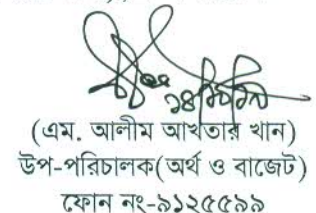 (এম. আলীম আখতার খান)
উপ-পরিচালক(অর্থ ও বাজেট)
ফোন নং-৯১২৫৫৯৯